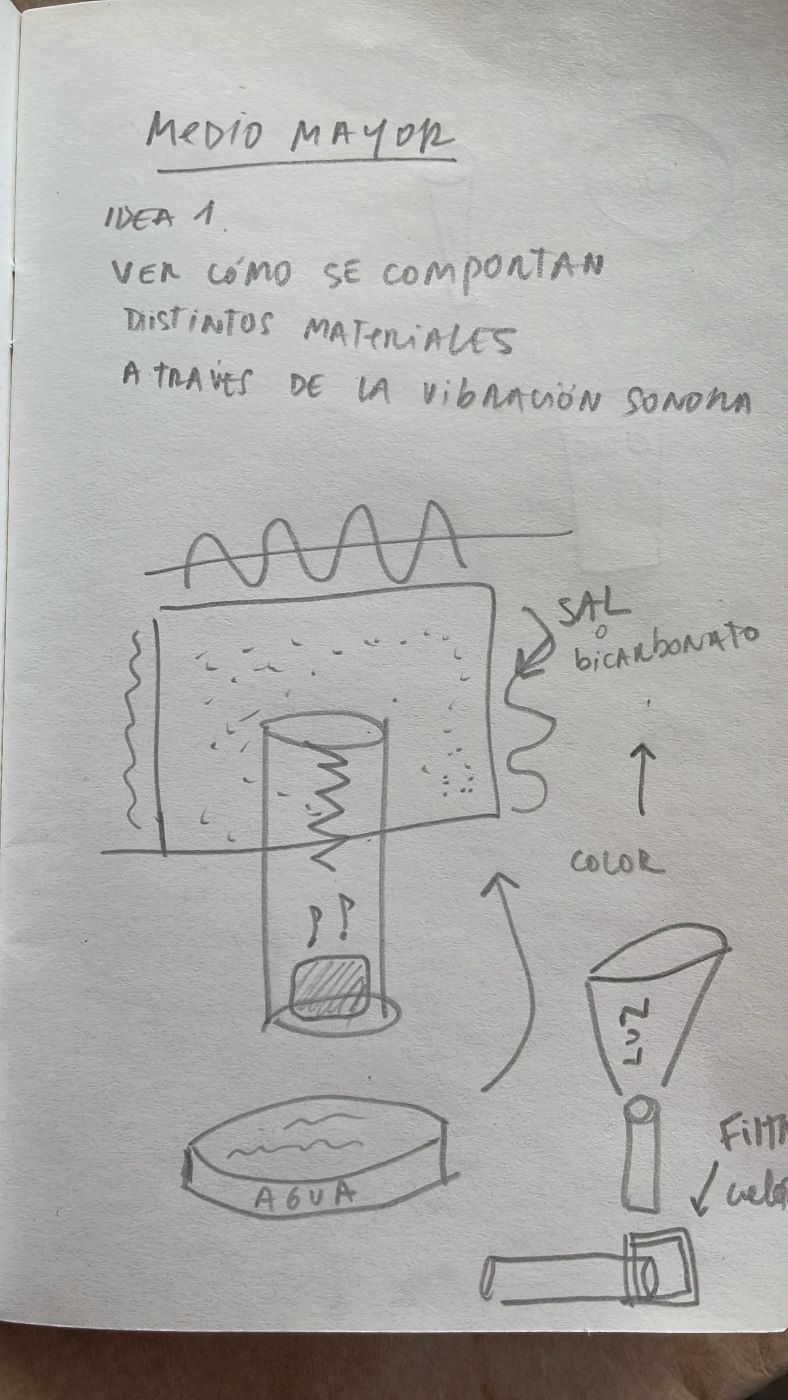 MEDIO MAYOR
IDEA 1.
VER CÓMO SE COMPORTAN
DISTINTOS MATERIALES
A TRAVÉS DE LA VIBRACIÓN SONORA
SAL
o
bicARbONATO
COLOR
LUZ
AGUA